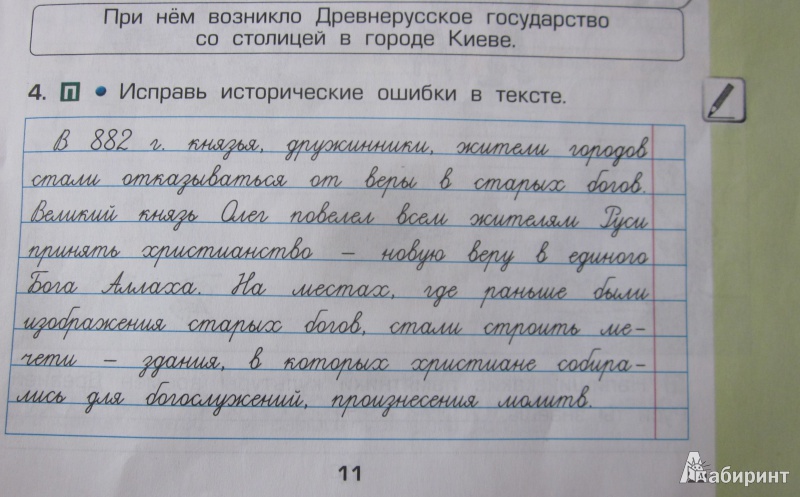 При нём возникло Древнерусское государство
со столицей в городе Киеве.
4. П • Исправь исторические ошибки в тексте.
В 882 г. князья, дружинники, жители городов
стали отказываться от веры в старых богов.
Великий князь Олег повелел всем жителям Руси
принять христианство – новую веру в единого
Бога Аллаха. На местах, где раньше были
изображения старых богов, стали строить ме-
чети – здания, в которых христиане собира-
лись для богослужений, произнесения молитв.
11
Лабиринт